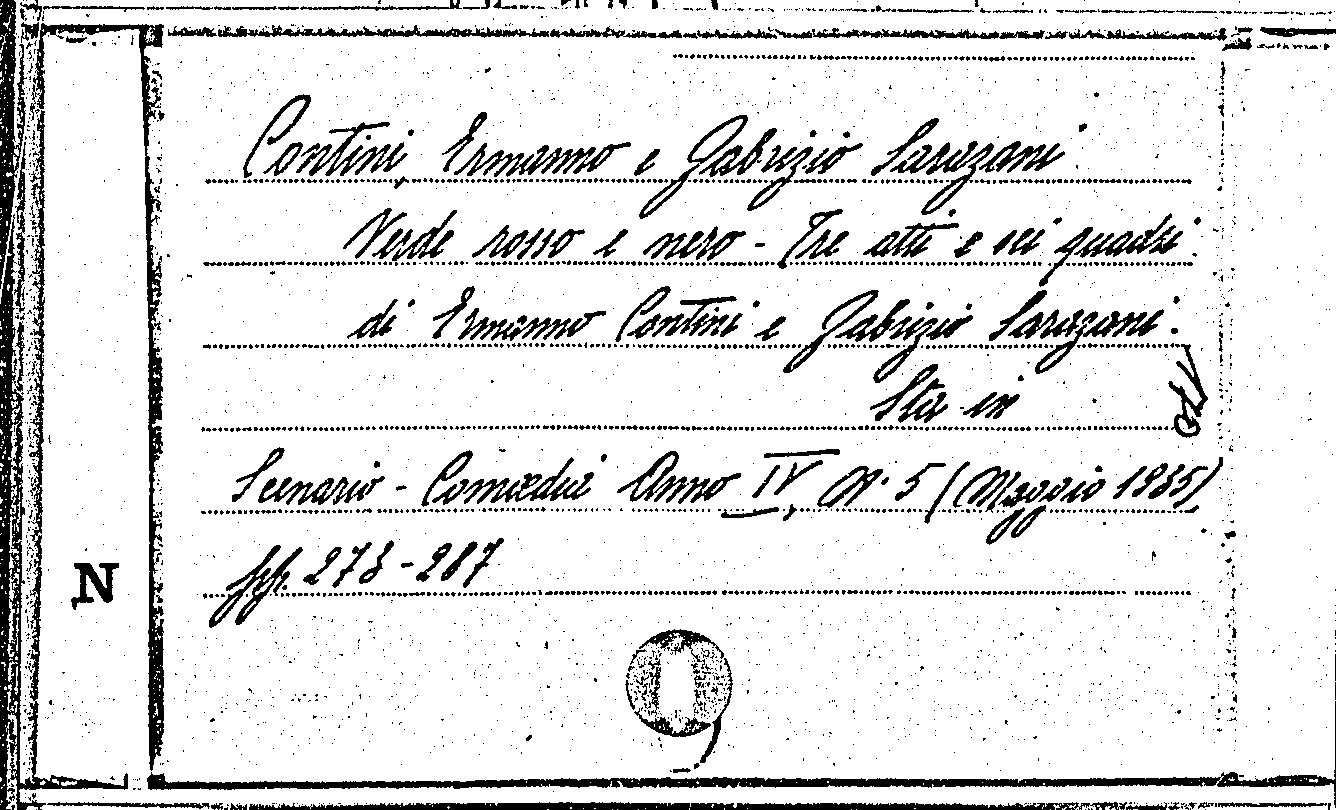 Contini, Ermanno e Gabrizio Sarazani
Verde rosso e nero - Tre atti e sei quadri
di Ermanno Contini e Gabrizio Sarazani.
Sta in
Scenario - Comœdia Anno IV, N. 5 (Maggio 1935)
pp. 273-287
N